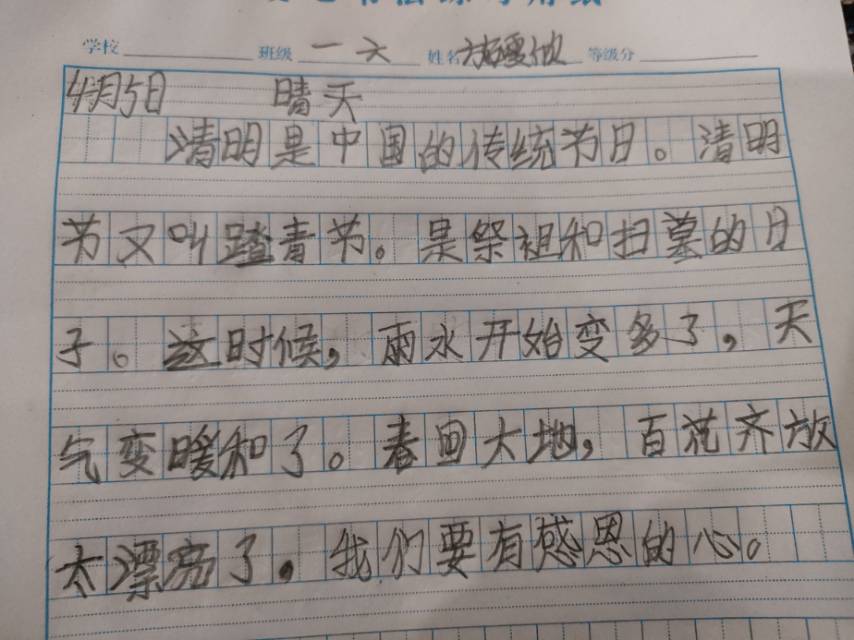 学校 班级 一 六 姓名 等级分
4月5日 晴天
清明是中国的传统节日。清明
节又叫踏青节。是祭祖和扫墓的日
子。这时候，雨水开始变多了，天
气变暖和了。春回大地，百花齐放
太漂亮了，我们要有感恩的心。